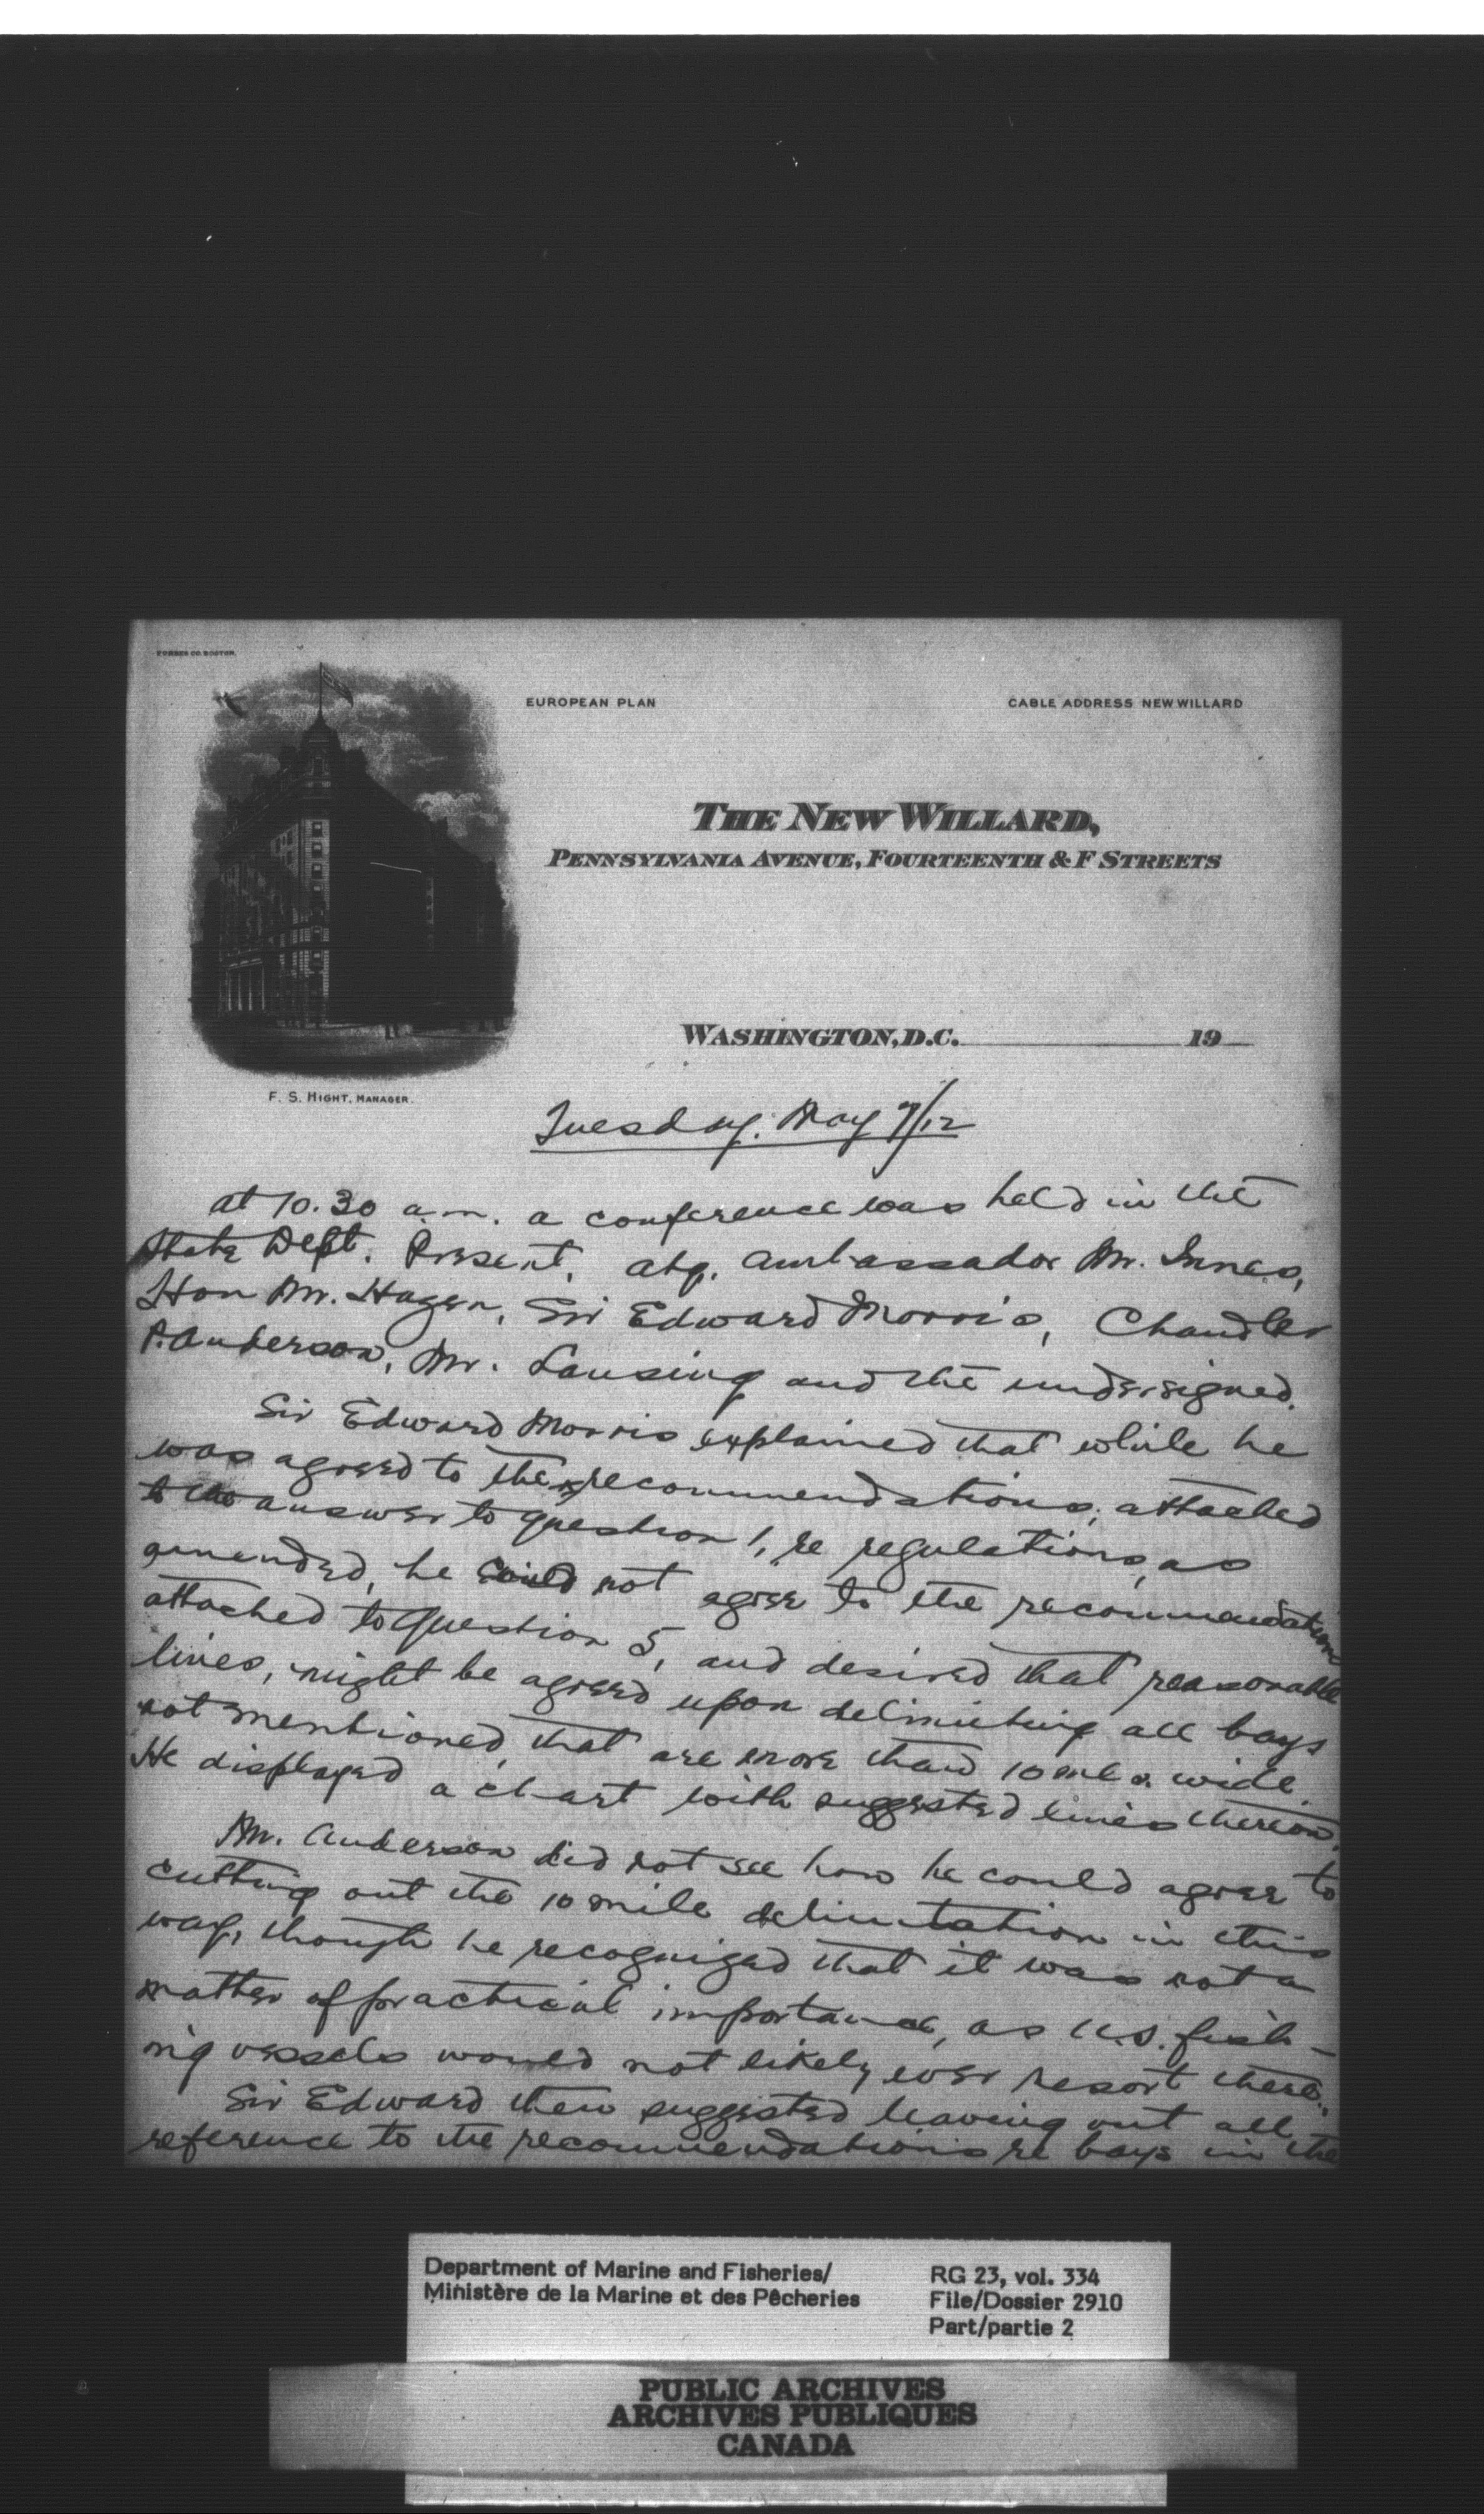 FORBES CO. BOSTON.
EUROPEAN PLAN
CABLE ADDRESS NEWWILLARD
THE NEW WILLARD,
PENNSYLVANIA AVENUE, FOURTEENTH & F STREETS
WASHINGTON, D.C. 19
F. S. HIGHT, MANAGER.
Tuesday. May 7/12
at 10.30 a.m. a conference was held in the
State Dept. Present, atg. Ambassador Mr. Innes,
Hon Mr. Hazen, Sir Edward Morris, Chandler
P. Anderson, Mr. Lansing and the undersigned.
Sir Edward Morris explained that while he
was agreed to the recommendations, attached
to the answer to question 1, re regulations, as
amended, he could not agree to the recommendations
attached to question 5, and desired that reasonable
lines, might be agreed upon delimiting all bays
not mentioned, that are more than 10 mles wide.
He displayed a chart with suggested lines thereon.
Mr. Anderson did not see how he could agree to
cutting out the 10 mile delimitation in this
way, though he recognized that it was not a
matter of practical importance, as U.S. fish-
ing vessels would not likely ever resort there.
Sir Edward then suggested leaving out all
reference to the recommendations re bays in the
Department of Marine and Fisheries/
Ministère de la Marine et des Pêcheries
RG 23, vol. 334
File/Dossier 2910
Part/partie 2
PUBLIC ARCHIVES
ARCHIVES PUBLIQUES
CANADA